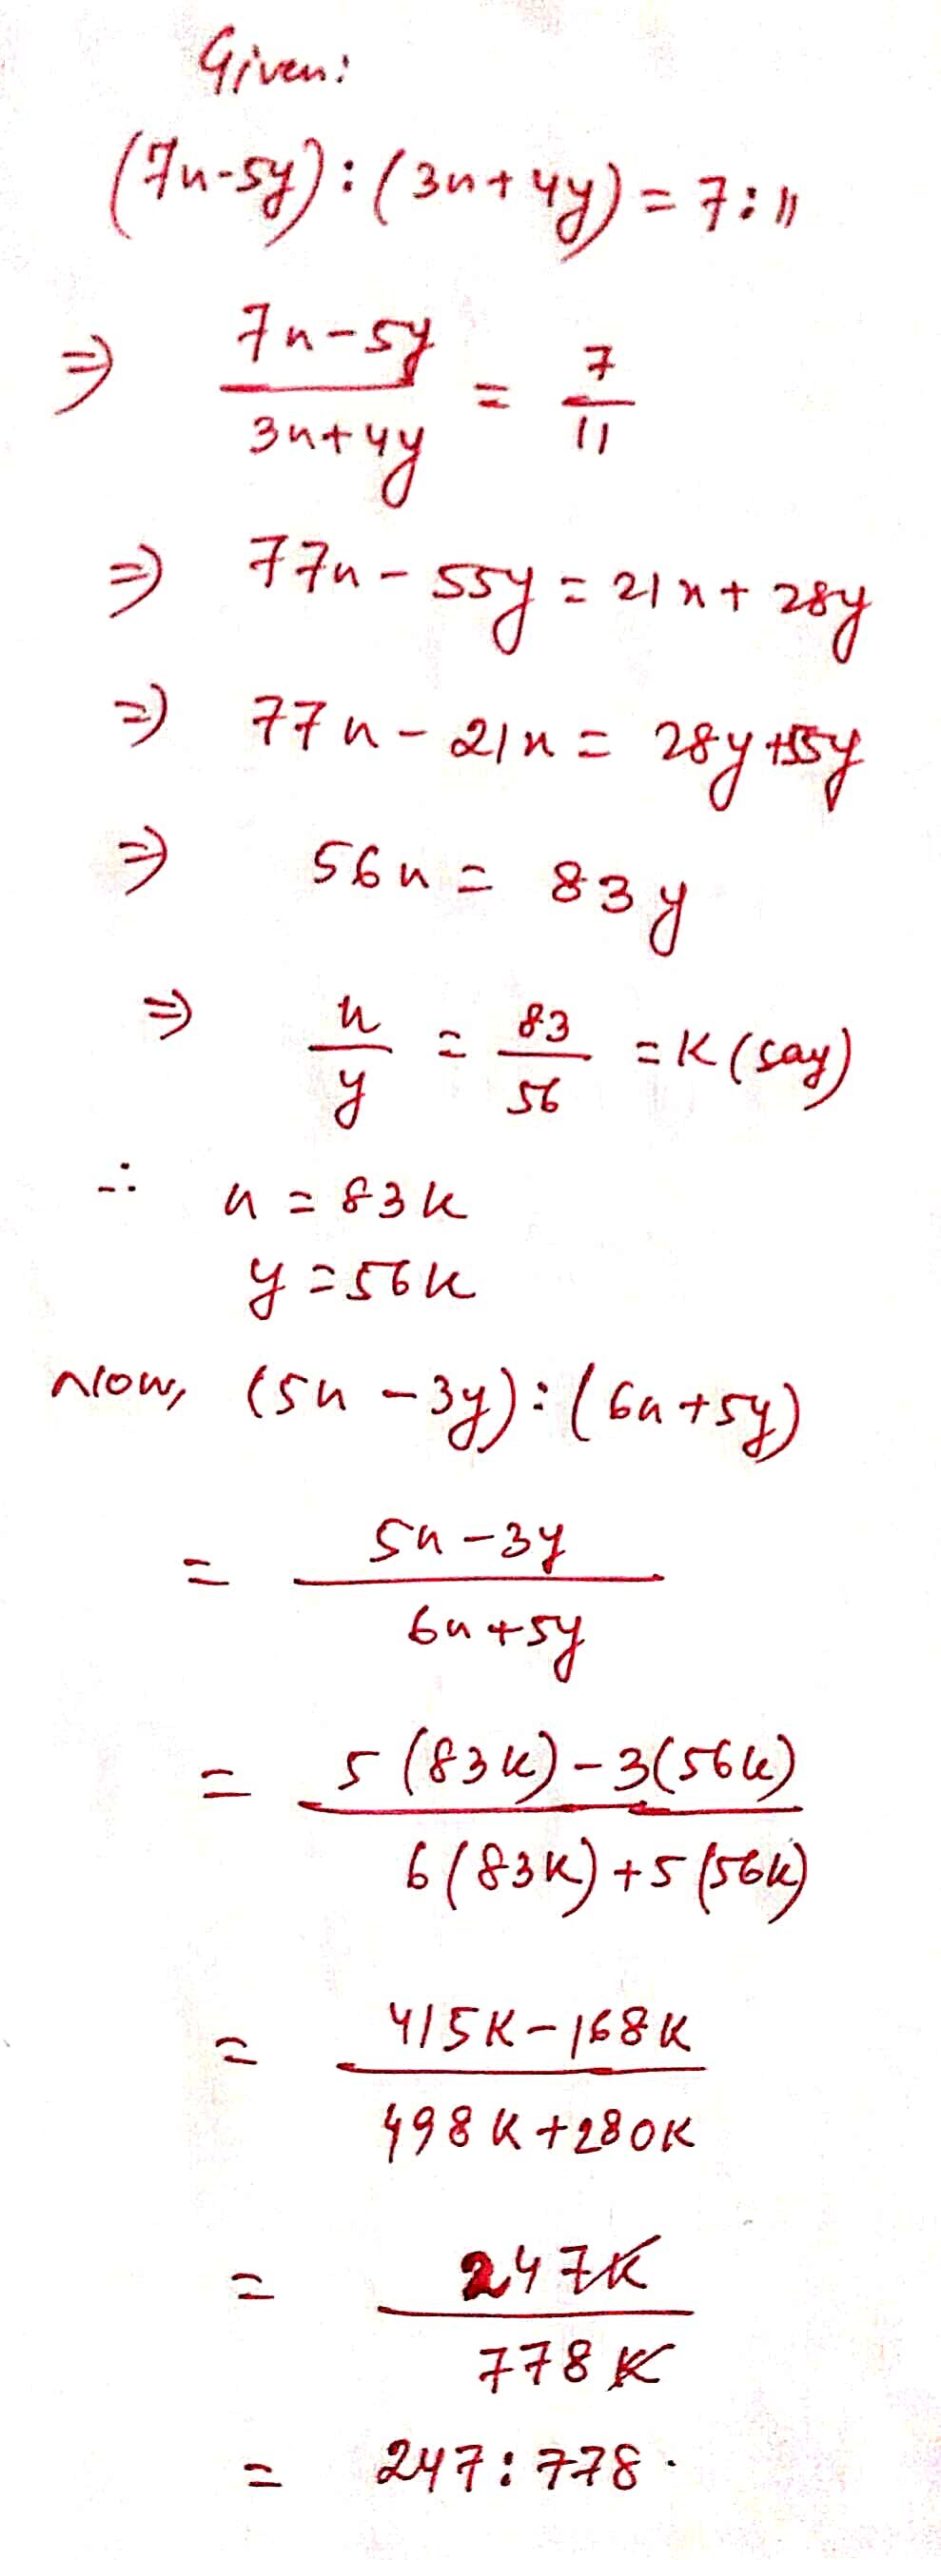 Given:
(7x-5y):(3x+4y)=7:11
⇒ (7x-5y)/(3x+4y) = 7/11
⇒ 77x-55y=21x+28y
⇒ 77x-21x=28y+55y
⇒ 56x=83y
⇒ x/y = 83/56 =K(say)
∴ x=83k
y=56k
Now, (5x-3y):(6x+5y)
= (5x-3y)/(6x+5y)
= (5(83k)-3(56k))/(6(83k)+5(56k))
= (415k-168k)/(498k+280k)
= 247k/778k
= 247:778.